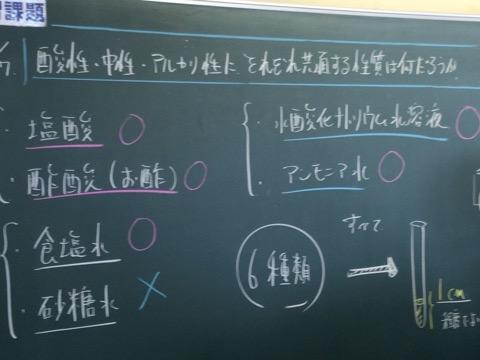 課題
酸性・中性・アルカリ性に それぞれ共通する性質は何だろうか
・塩酸 ○
・酢酸(お酢) ○
・食塩水 ○
・砂糖水 ×
・水酸化ナトリウム水溶液 ○
・アンモニア水 ○
6種類
すべて
1cm